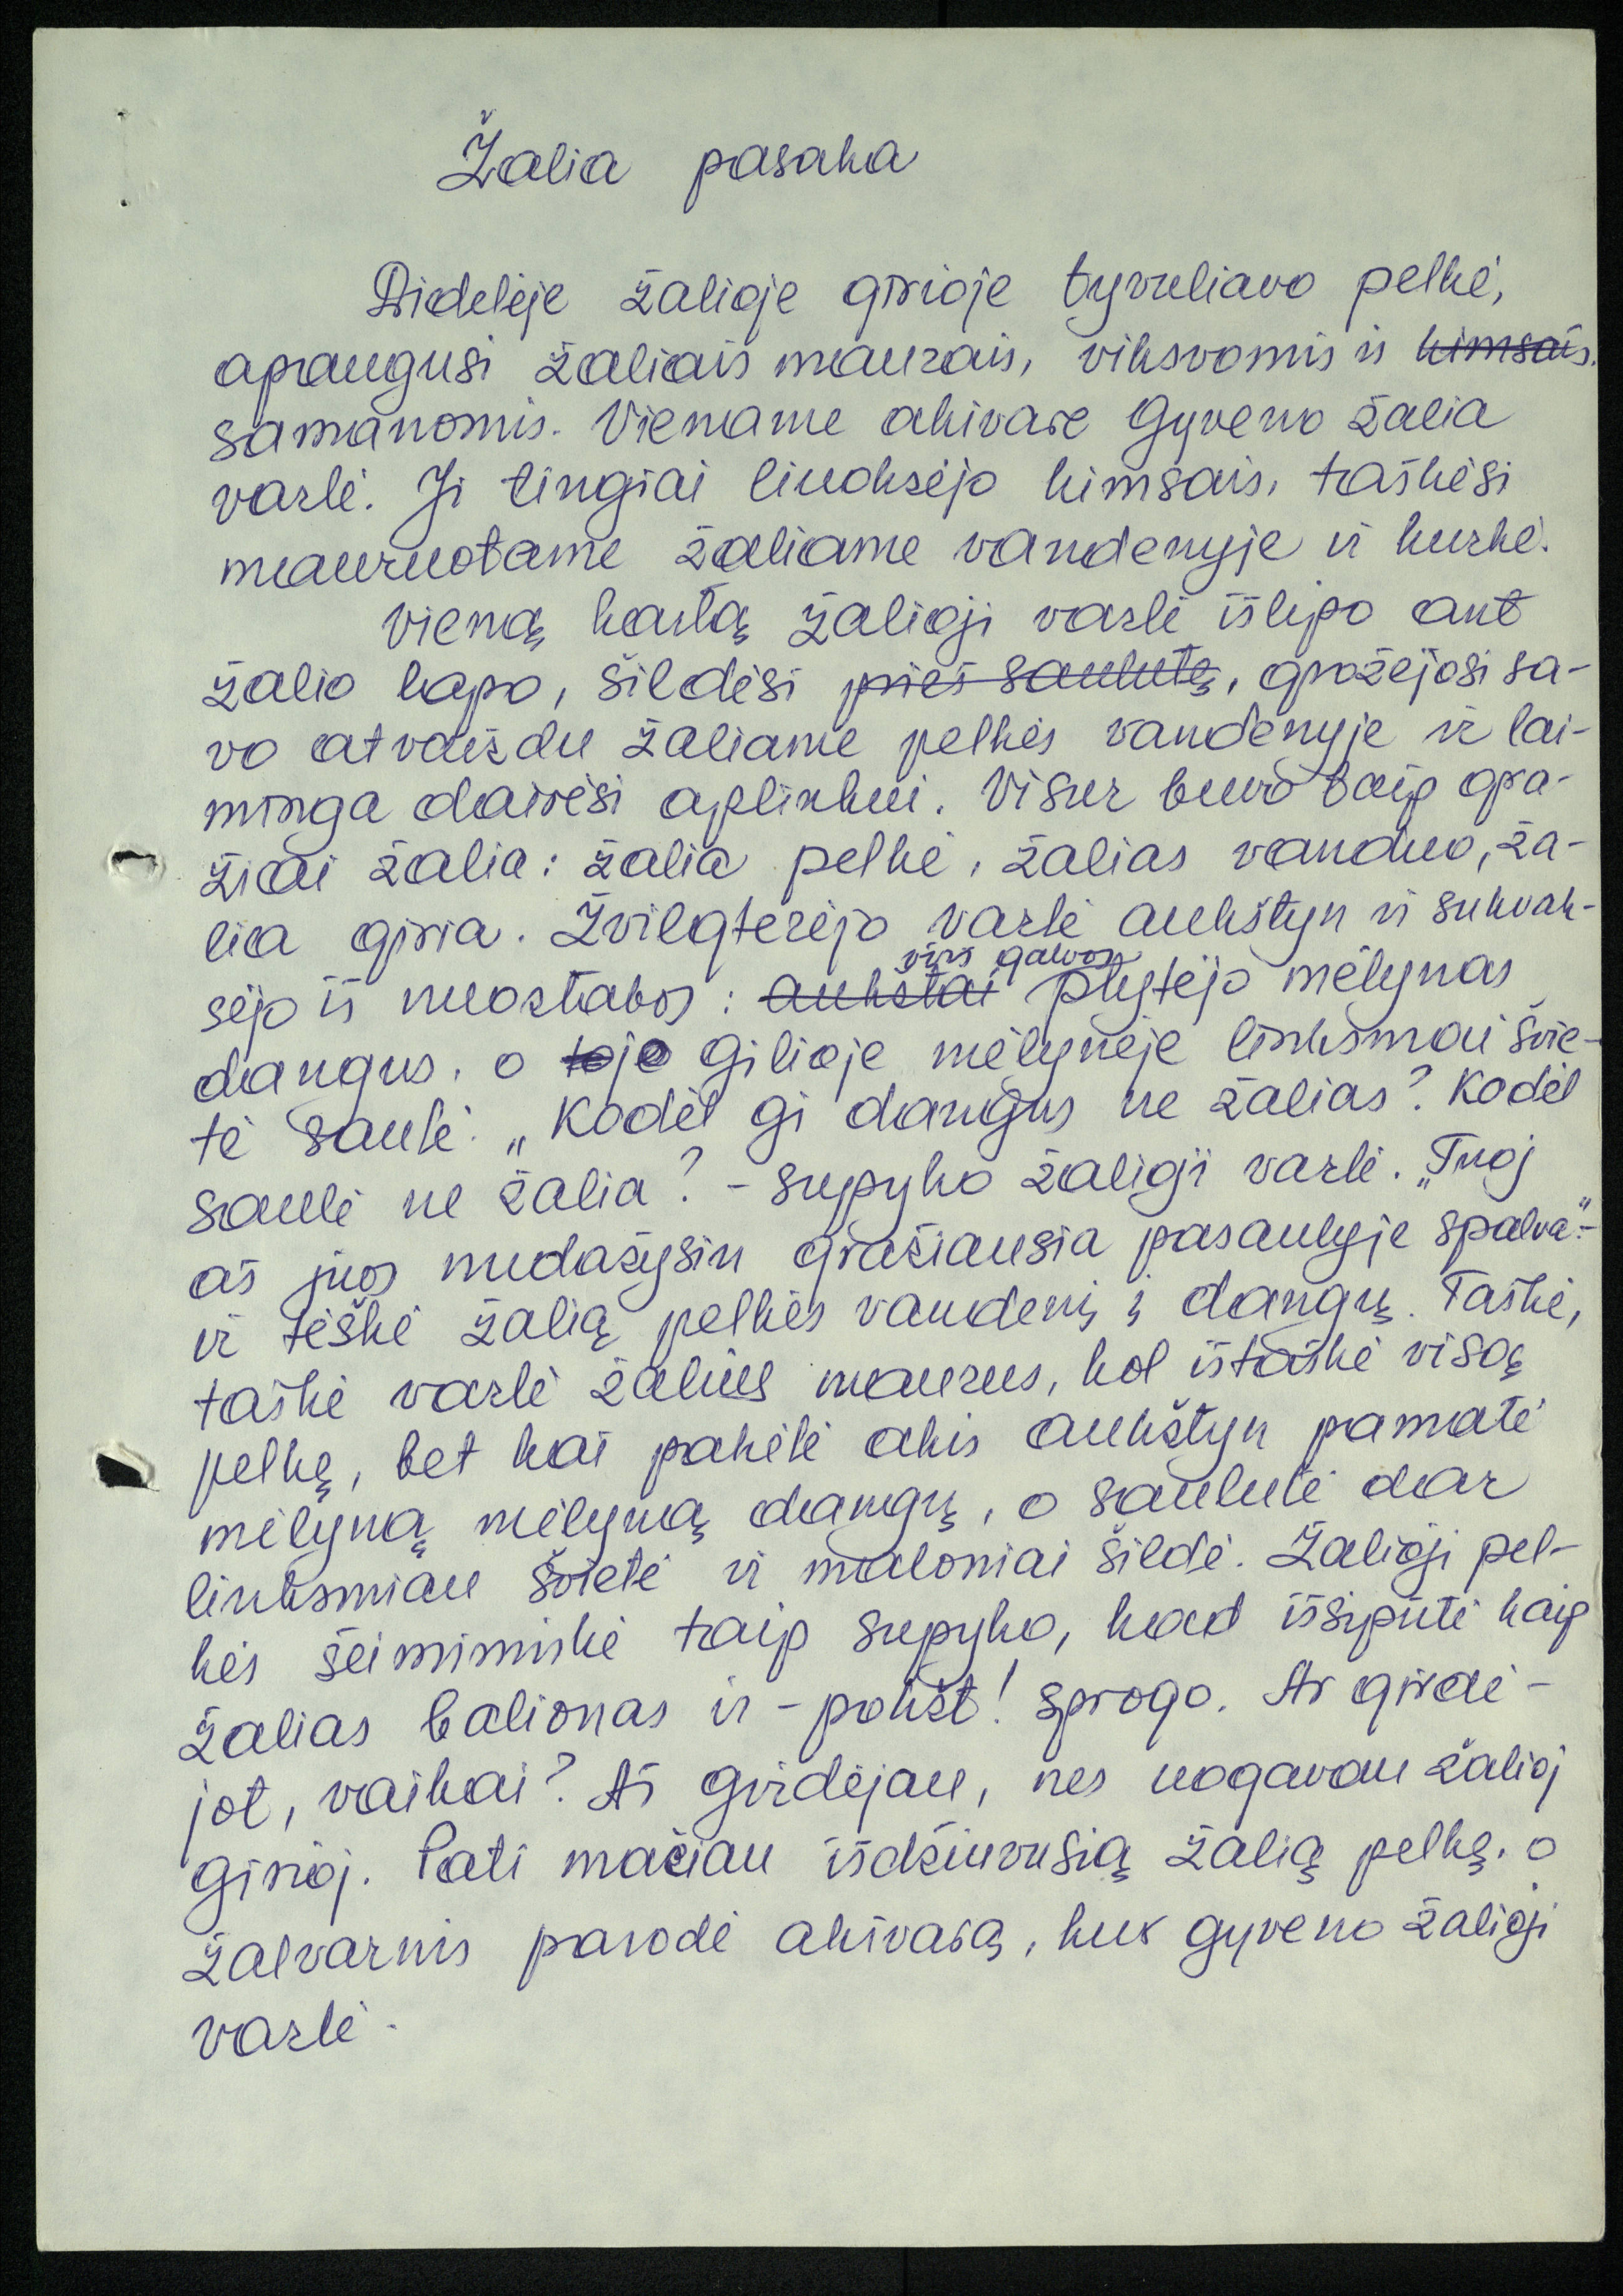 Žalia pasaka
Didelėje žalioje girioje tyvuliavo pelkė,
apaugusi žaliais maurais, viksvomis ir kimsais.
samanomis. Viename akivare gyveno žalia
varlė. Ji tingiai liuoksėjo kimsais, taškėsi
mauruotame žaliame vandenyje ir kurkė.
Vieną kartą žalioji varlė išlipo ant
žalio lapo, šildėsi prieš saulutę, grožėjosi sa-
vo atvaizdu žaliame pelkės vandenyje ir lai-
minga dairėsi aplinkui. Visur buvo taip gra-
žiai žalia: žalia pelkė, žalias vanduo, ža-
lia giria. Žvilgterėjo varlė aukštyn ir sukvak-
sėjo iš nuostabos: aukštai virš galvos plytėjo mėlynas
dangus, o toje gilioje mėlynėje linksmai švie-
tė saulė. „Kodėl gi dangus ne žalias? Kodėl
saulė ne žalia? - supyko žalioji varlė. „Tuoj
aš juos nudažysiu gražiausia pasaulyje spalva"-
ir tėškė žalią pelkės vandenį į dangų. Taškė,
taškė varlė žalius maurus, kol ištaškė visą
pelkę, bet kai pakėlė akis aukštyn pamatė
mėlyną mėlyną dangų, o saulutė dar
linksmiau švietė ir maloniai šildė. Žalioji pel-
kės šeimininkė taip supyko, kad išsipūtė kaip
žalias balionas ir - pokšt! sprogo. Ar girdė-
jot, vaikai? Aš girdėjau, nes uogavau žalioj
girioj. Pati mačiau išdžiuvusią žalią pelkę, o
žalvarnis parodė akivarą, kur gyveno žalioji
varlė.